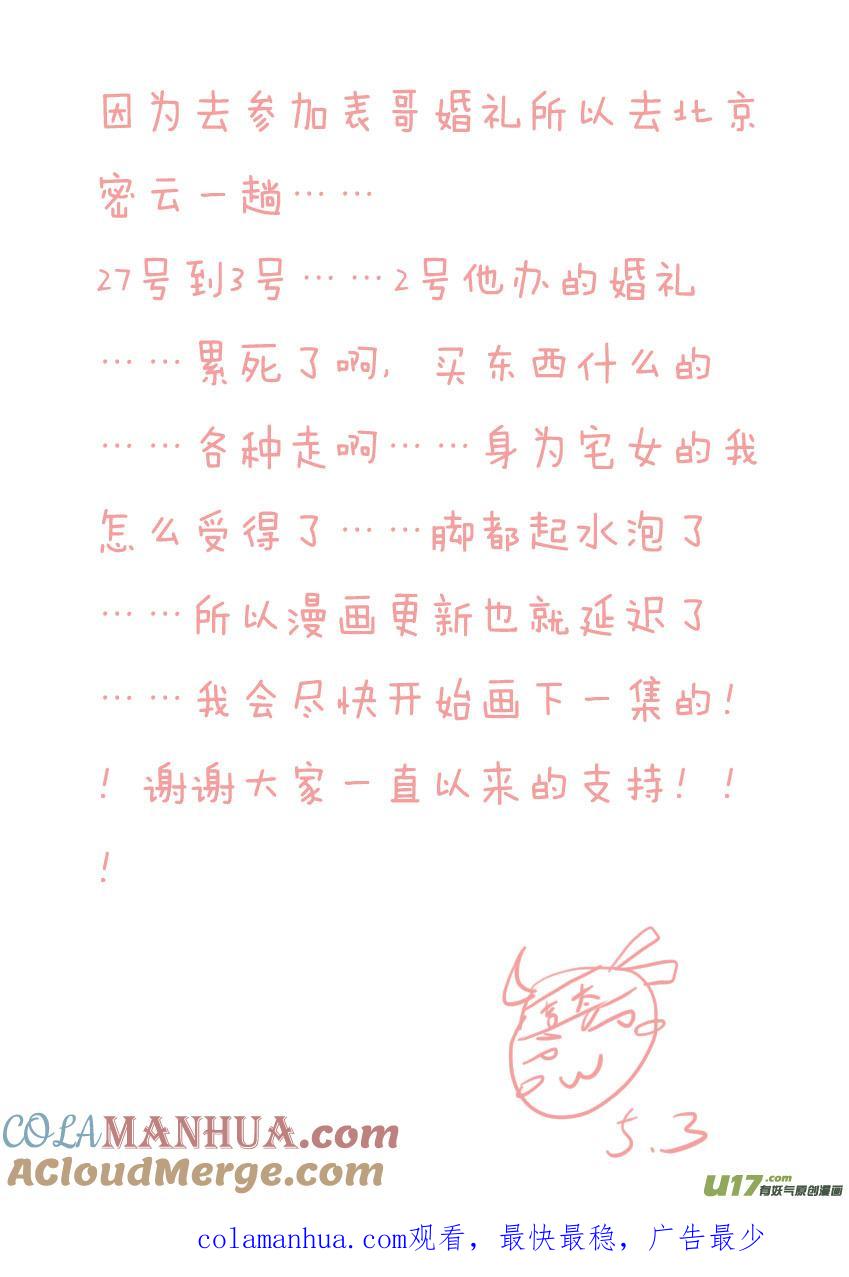 因为去参加表哥婚礼所以去北京
密云一趟……
27号到3号……2号他办的婚礼
……累死了啊，买东西什么的
……各种走啊……身为宅女的我
怎么受得了……脚都起水泡了
……所以漫画更新也就延迟了
……我会尽快开始画下一集的！
！谢谢大家一直以来的支持！！
！
5.3
COLAMANHUA.com
ACloudMerge.com
U17.com
有妖气原创漫画
colamanhua.com观看，最快最稳，广告最少